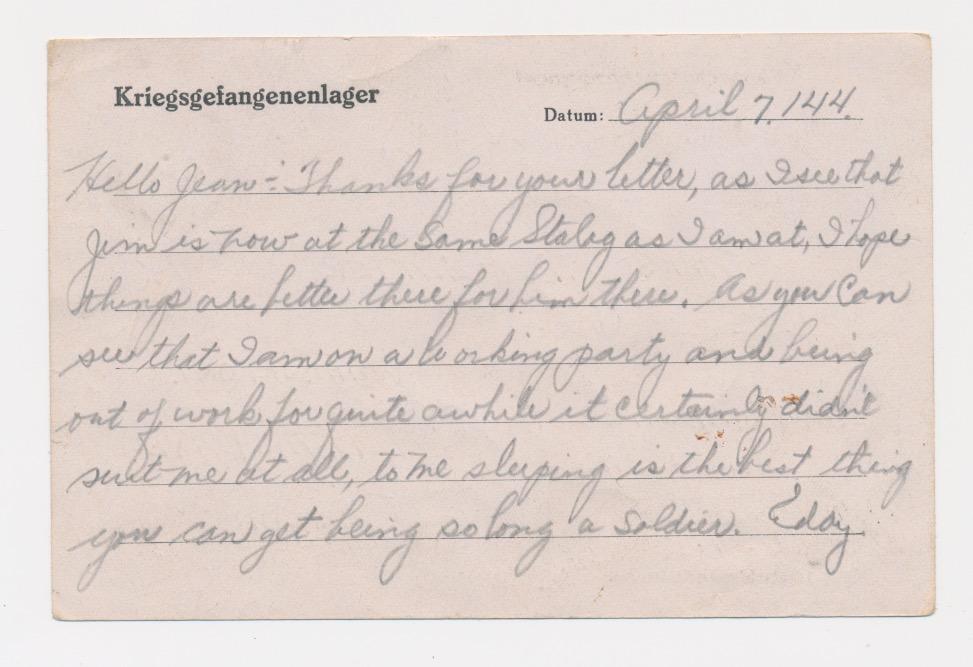 Kriegsgefangenenlager
Datum: April 7./44.
Hello Jean-: Thanks for your letter, as I see that
Jim is now at the same Stalag as I am at, I hope
things are better there for him there. As you can
see that I am on a working party and being
out of work for quite awhile it certainly didn't
suit me at all, to me sleeping is the best thing
you can get being so long a soldier. Eddy.